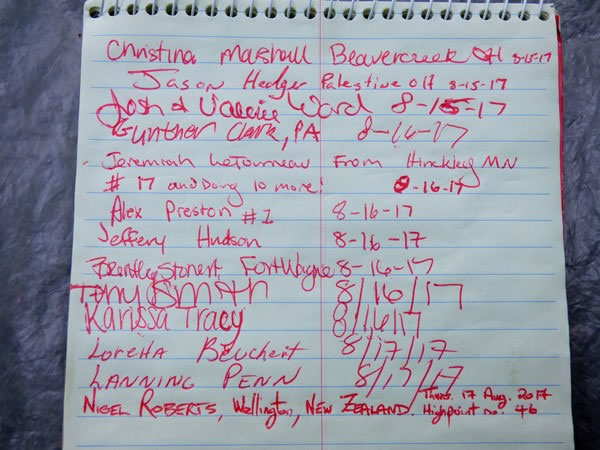 Christina Marshall Beavercreek OH 8-15-17
Jason Hedger Palestine OH 8-15-17
Josh & Valerie Ward 8-15-17
Gunther Clark, PA 8-16-17
- Jeremiah LeTourneau From Hinckley MN
# 17 and Doing 10 more! 8-16-17
Alex Preston #1 8-16-17
Jeffery Hudson 8-16-17
Fort Wayne 8-16-17
Tony Smith 8/16/17
Karissa Tracy 8/16/17
Loretta Beuchert 8/17/17
LANNING PENN 8/17/17
NIGEL ROBERTS, Wellington, NEW ZEALAND. Thurs. 17 Aug. 2017
Highpoint no. 46